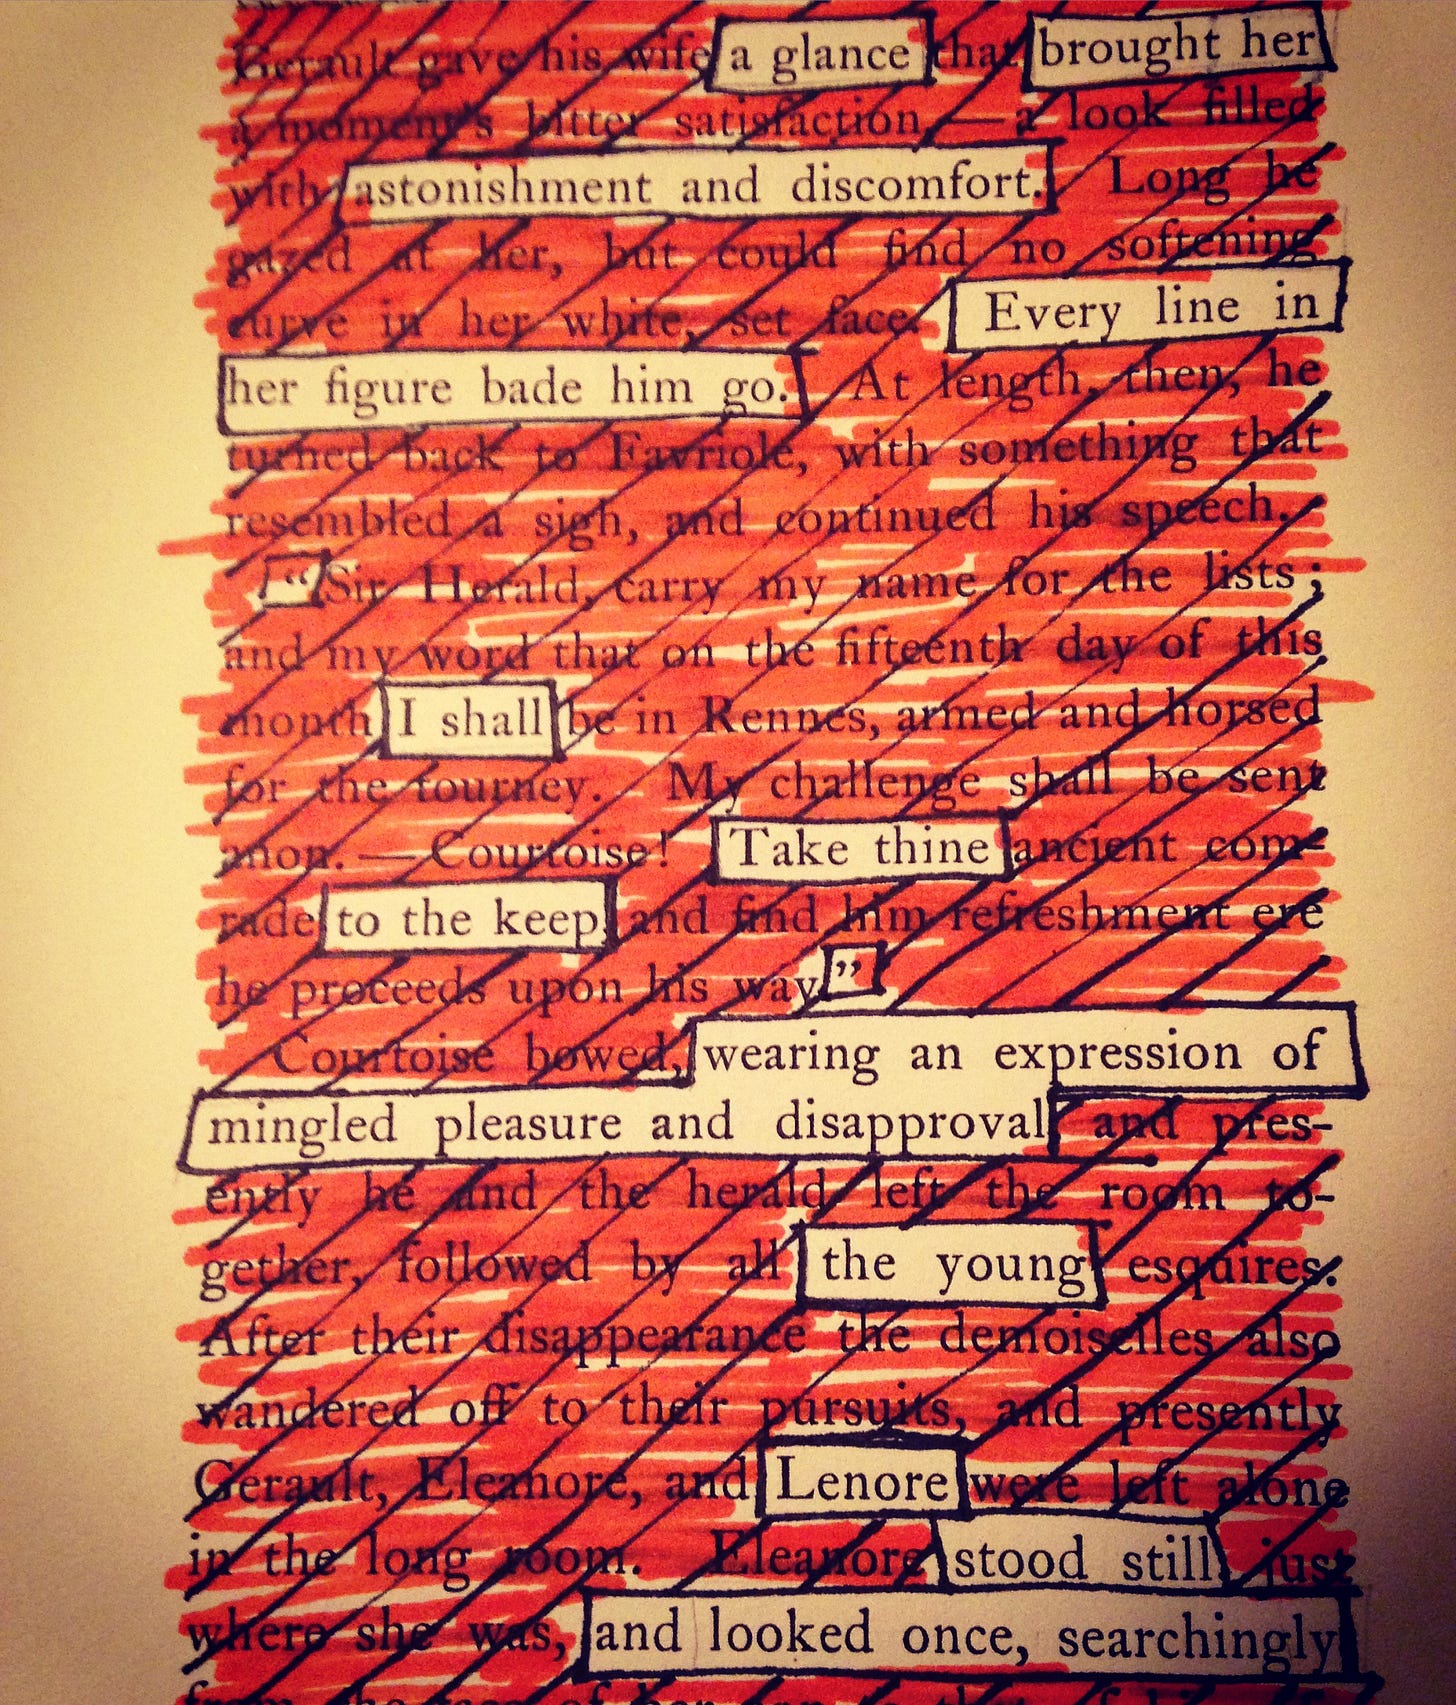 Gerault gave his wife a glance that brought her
a moment's bitter satisfaction, — a look filled
with astonishment and discomfort. Long he
gazed at her, but could find no softening
curve in her white, set face. Every line in
her figure bade him go. At length, then, he
turned back to Favriole, with something that
resembled a sigh, and continued his speech.
“Sir Herald, carry my name for the lists;
and my word that on the fifteenth day of this
month I shall be in Rennes, armed and horsed
for the tourney. My challenge shall be sent
anon. — Courtoise! Take thine ancient com-
rade to the keep, and find him refreshment ere
he proceeds upon his way.”
Courtoise bowed, wearing an expression of
mingled pleasure and disapproval, and pres-
ently he and the herald left the room to-
gether, followed by all the young esquires.
After their disappearance the demoiselles also
wandered off to their pursuits, and presently
Gerault, Eleanore, and Lenore were left alone
in the long room. Eleanore stood still, just
where she was, and looked once, searchingly
from the face of her son to that of